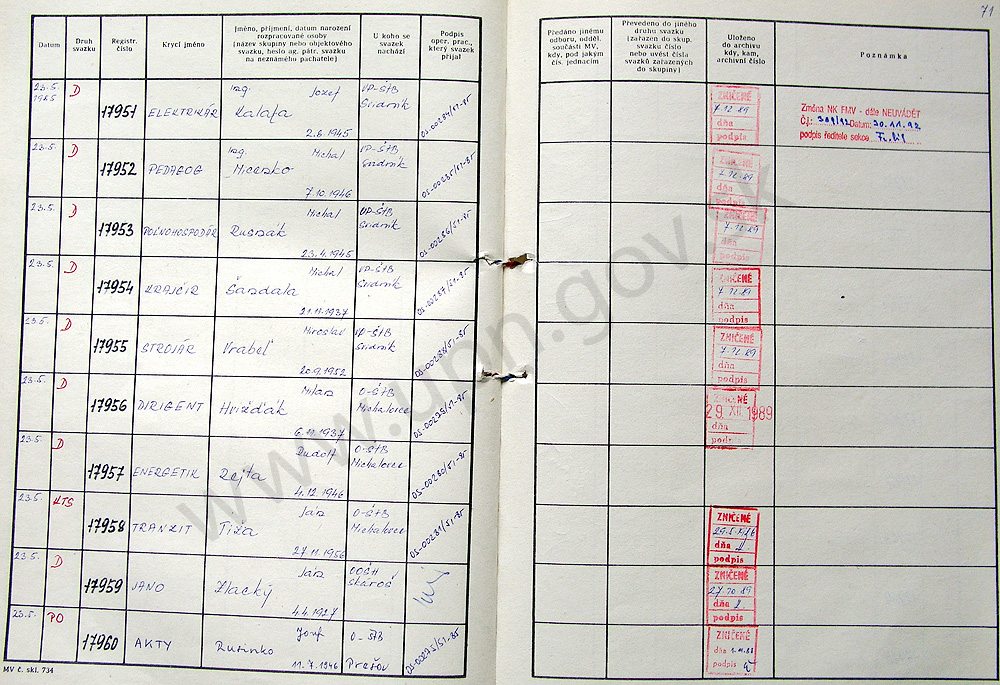 71
Datum
Druh svazku
Registr. číslo
Krycí jméno
Jméno, příjmení, datum narození rozpracované osoby (název skupiny nebo objektového svazku, heslo ag. pátr. svazku na neznámého pachatele)
U koho se svazek nachází
Podpis oper. prac., který svazek přijal
Předáno jinému odboru, odděl. součásti MV, kdy, pod jakým čís. jednacím
Převedeno do jiného druhu svazku (zařazen do skup. svazku číslo nebo uvést čísla svazků zařazených do skupiny)
Uloženo do archivu kdy, kam, archivní číslo
Poznámka
23.5. 1985 D 17951 ELEKTRIKÁR Ing. Jozef Kalafa 2.6.1945 VP-ŠtB Svidník OS-00284/51-85
ZNIČENÉ 7.12.89 dňa podpis
Změna NK FMV - dále NEUVÁDĚT
Č.j.: 309/92 Datum: 30.11.92
podpis ředitele sekce
23.5. D 17952 PEDAGOG Ing. Michal 7.10.1946 VP-ŠtB Svidník OS-00285/51-85
ZNIČENÉ 7.12.89 dňa podpis
23.5. D 17953 POĽNOHOSPODÁR Michal Rusnák 23.4.1945 VP-ŠtB Svidník OS-00286/51-85
ZNIČENÉ 7.12.89 dňa podpis
23.5. D 17954 KRAJČÍR Michal Šandala 21.11.1937 VP-ŠtB Svidník OS-00287/51-85
ZNIČENÉ 7.12.89 dňa podpis
23.5. D 17955 STROJÁR Miroslav Vrabeľ 20.9.1952 VP-ŠtB Svidník OS-00288/51-85
ZNIČENÉ 7.12.89 dňa podpis
23.5. D 17956 DIRIGENT Milan Hrižďák 6.11.1937 O-ŠtB Michalovce
ZNIČENÉ 29. XII. 1989 dňa podpis
23.5. D 17957 ENERGETIK Rudolf Rejta 4.12.1946 O-ŠtB Michalovce OS-00280/51-85
23.5. KTS 17958 TRANZIT Ján Tiža 27.11.1956 O-ŠtB Michalovce OS-00281/51-85
ZNIČENÉ dňa podpis
23.5. D 17959 JANO Ján Zlacký 4.4.1927 OOČH Skároš
ZNIČENÉ 27.10.89 dňa podpis
23.5. PO 17960 AKTY Jozef Rusinko 11.7.1946 O-ŠtB Prešov OS-00275/51-85
ZNIČENÉ dňa podpis
MV č. skl. 734
www.upn.gov.sk